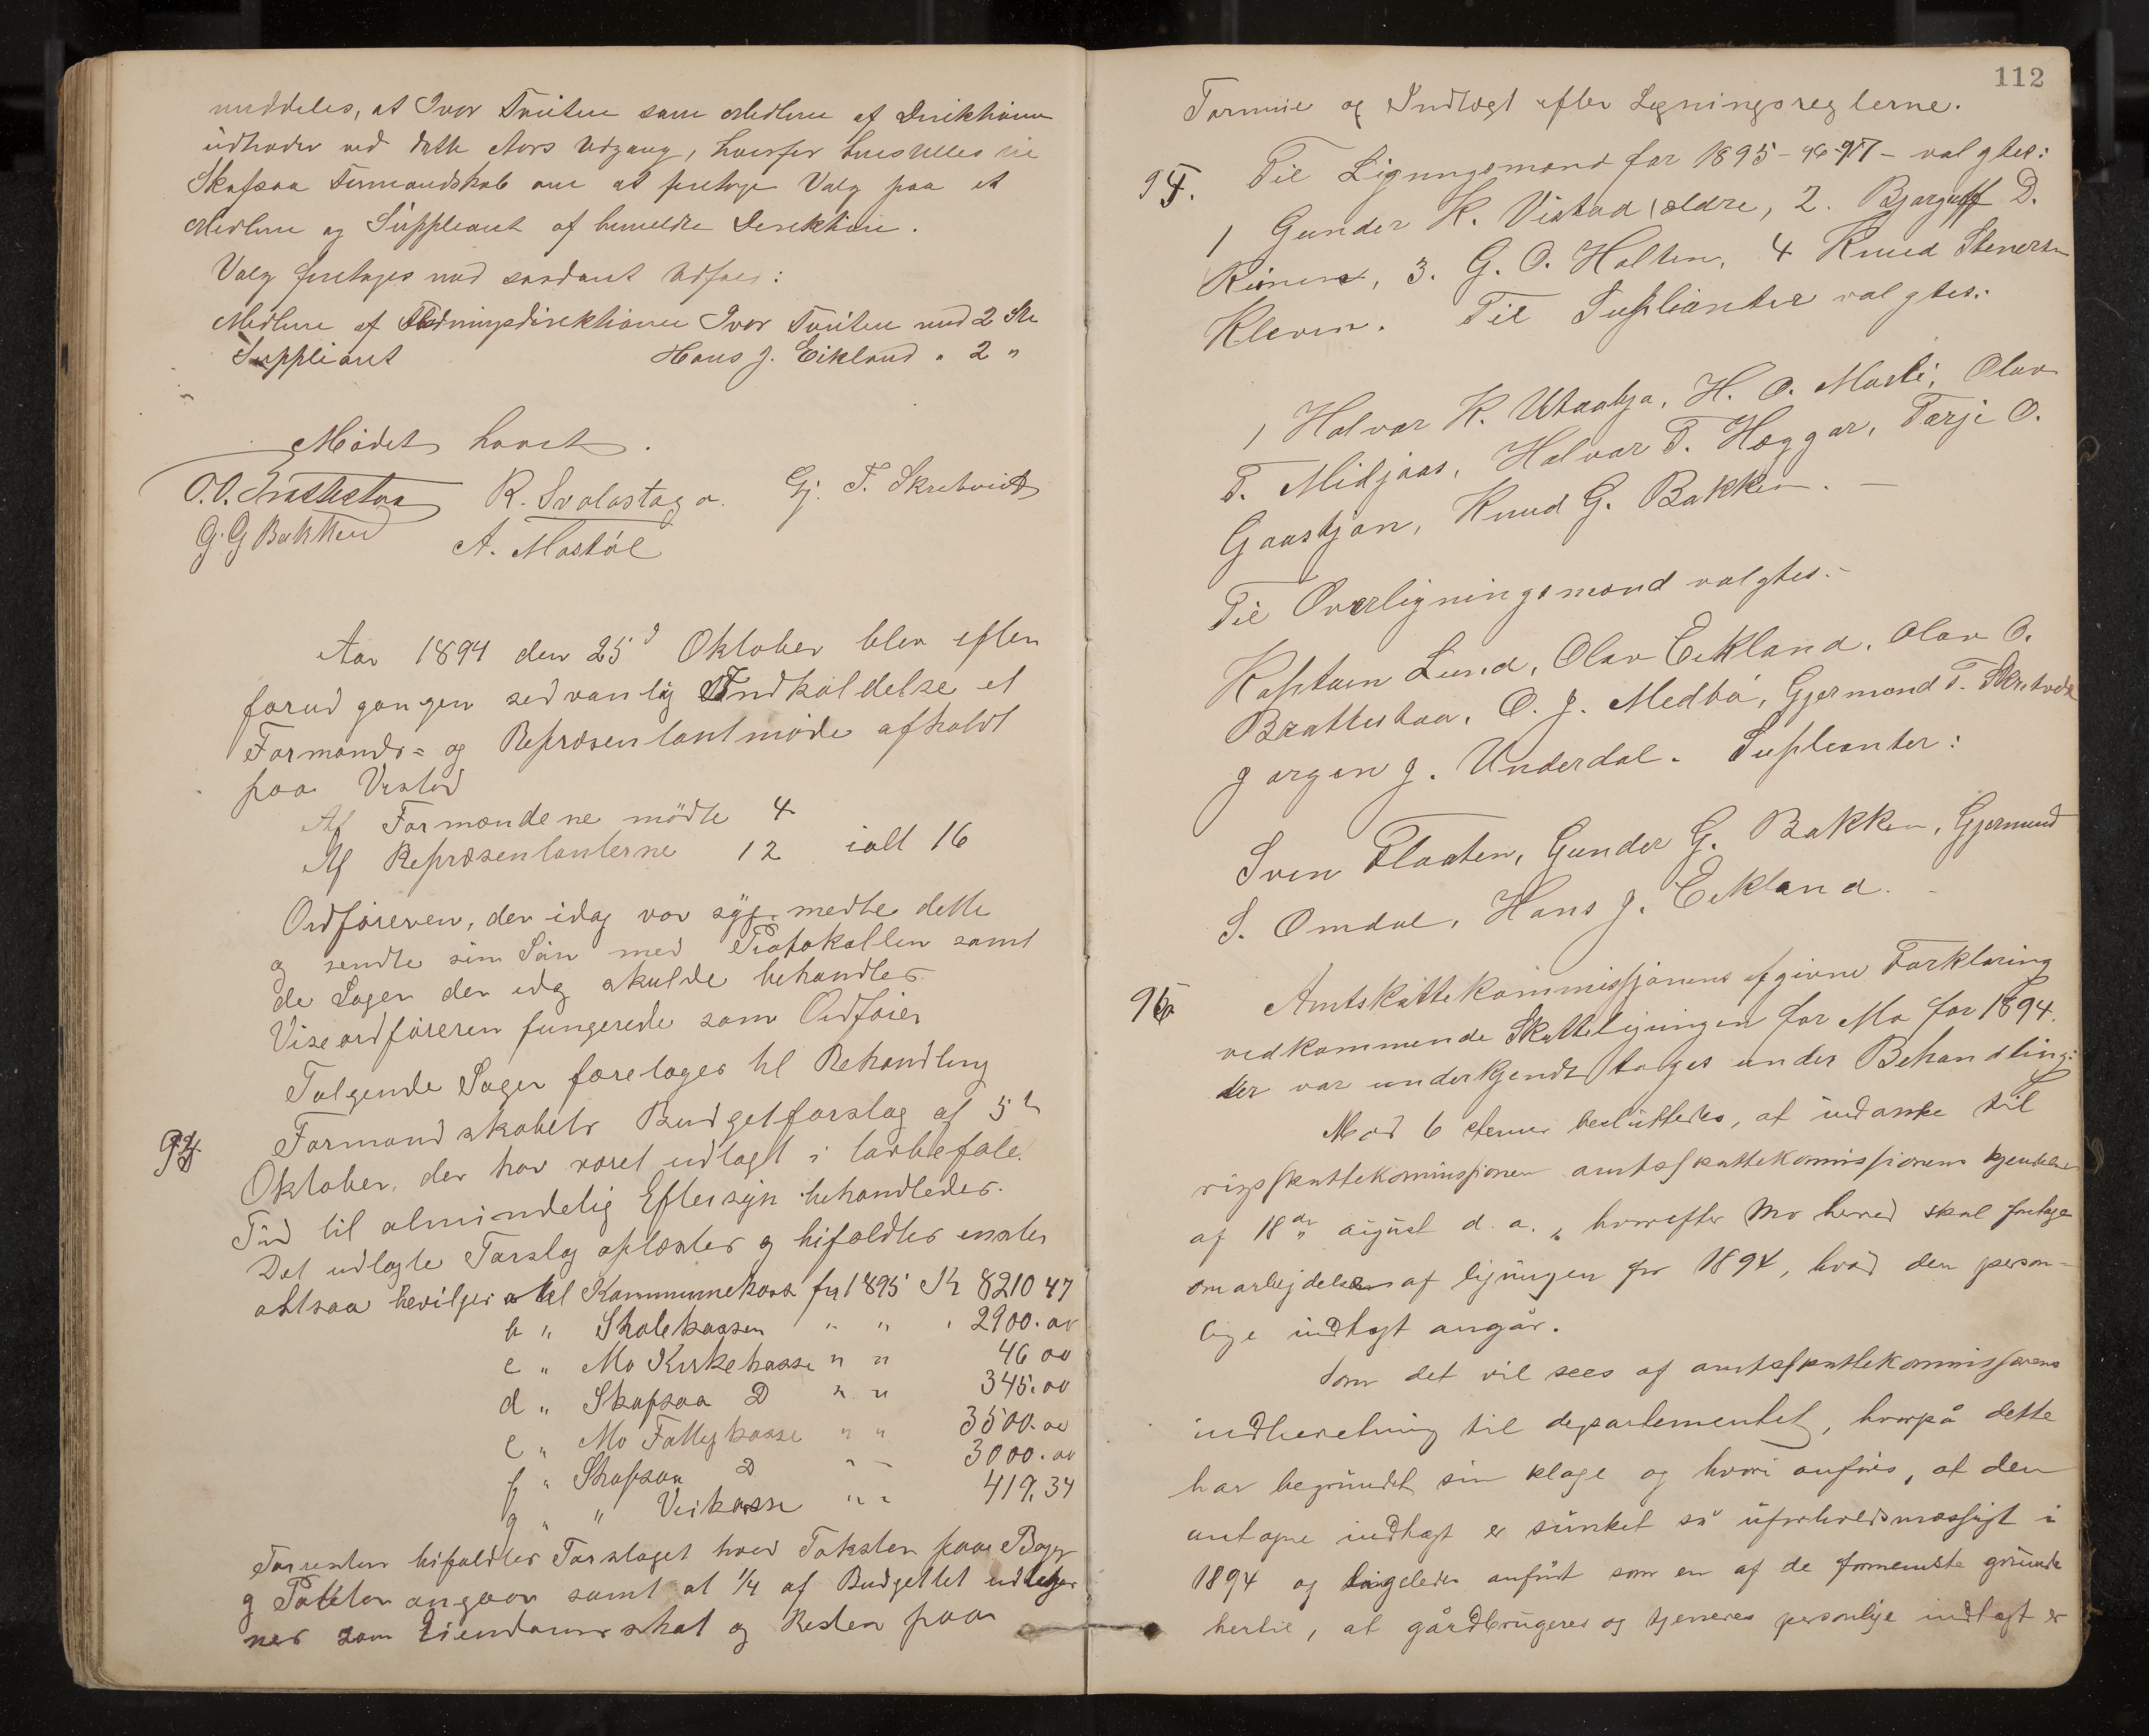 meddeles, at Ivar Tveiten som Medlem af Direktionen
udtræder ved dette Aars Udgang, hvorfor henstilles til
Skafsaa Formandskab om at foretage Valg paa et
Medlem og Suppleant af bemeldte Direktion.
Valg foretages med saadant Udfald:
Medlem af Direktionen Ivar Tveiten med 2 St
Suppleant Hans J. Eikland " 2 "
Mødet hævet.
O. O. Brattestaa R. Svalastoga. Gj. T. Skretveidt
G. G Bakken A. Mostøl
Aar 1894 den 25d Oktober blev efter
forud gangen sedvanlig Indkaldelse et
Formands= og Repræsentantmøde afholdt
paa Vistad
Af Formændene mødte 4
Af Repræsentanterne 12 ialt 16
Ordføreren, der idag var syg, medte dette
og sendte sin Søn med Protokollen samt
de Sager der idag skulde behandles
Viseordføreren fungerede som Ordfører
Følgende Sager foretoges til Behandling
94 Formandskabets Budgetforslag af 5te
Oktober, der har været udlagt i lovbefale.
Tid til almindelig Eftersyn behandledes.
Det udlagte Forslag oplæstes og bifaldtes enstes
altsaa bevilges a til Kommunekass for 1895 Kr 8210 47
b " Skolekassen " " " 2900. 00
c " Mo Kirkekasse " " 46 00
d " Skafsaa D " " 345. 00
e " Mo Fattigkasse " " 3500. 00
f " Skafsaa D " " 3000. 00
g " " Veikasse " " 419, 34
Foresten bifaldtes Forslaget hvad Taksten paa Byg
og Poteter angaar samt at 1/4 af Budgettet udlignes
som Eiendomsskat og Resten paa
112
Formue og Indtægt efter Ligningsreglerne.
95. Til Ligningsmænd for 1895-96-97- valgtes:
1 Gunder K. Vistad ældre, 2. Bjørgulf D.
3. G. O. Holten, 4 Knud Stenersen
Kleven. Til Suplianter valgtes:
1 Halvor K. Utaabja, H. O. Mosli, Olav
T. Midjaas, Halvor T. Høggar, Tarje O.
Gaastjøn, Knud G. Bakken. —
Til Overligningsmænd valgtes:-
Kaptein Lund, Olav Eikland, Olav O.
Brattestaa, O. J. Medbø, Gjermund T. Skretvedt
Jørgen J. Underdal. Supleanter:
Sven Flaaten, Gunder G. Bakken, Gjermund
S. Omdal, Hans J. Eikland. -
96 Amtskattekommissjonens afgivne Forklaring
vedkommende Skatteligningen for Mo for 1894.
der var underkjendt toges under Behandling:
Mod 6 stemmer besluttedes, at indanke til
rigsskattekommissionen amtsskattekommissionens kjendelse
af 18de august d. a., hvorefter Mo herred skal foretage
omarbejdelse af ligningen for 1894, hvad den person-
lige indtægt angår.
Som det vil sees af amtsskattekommissionens
indberetning til departementet, hvorpå dette
har begrundet sin klage og hvori anføres, at den
antagne indtægt er sunket så uforholdsmæssigt i
1894 og ligeledes anført som en af de fornemste grunde
hertil, at gårdbrugeres og tjeneres personlige indtægt er